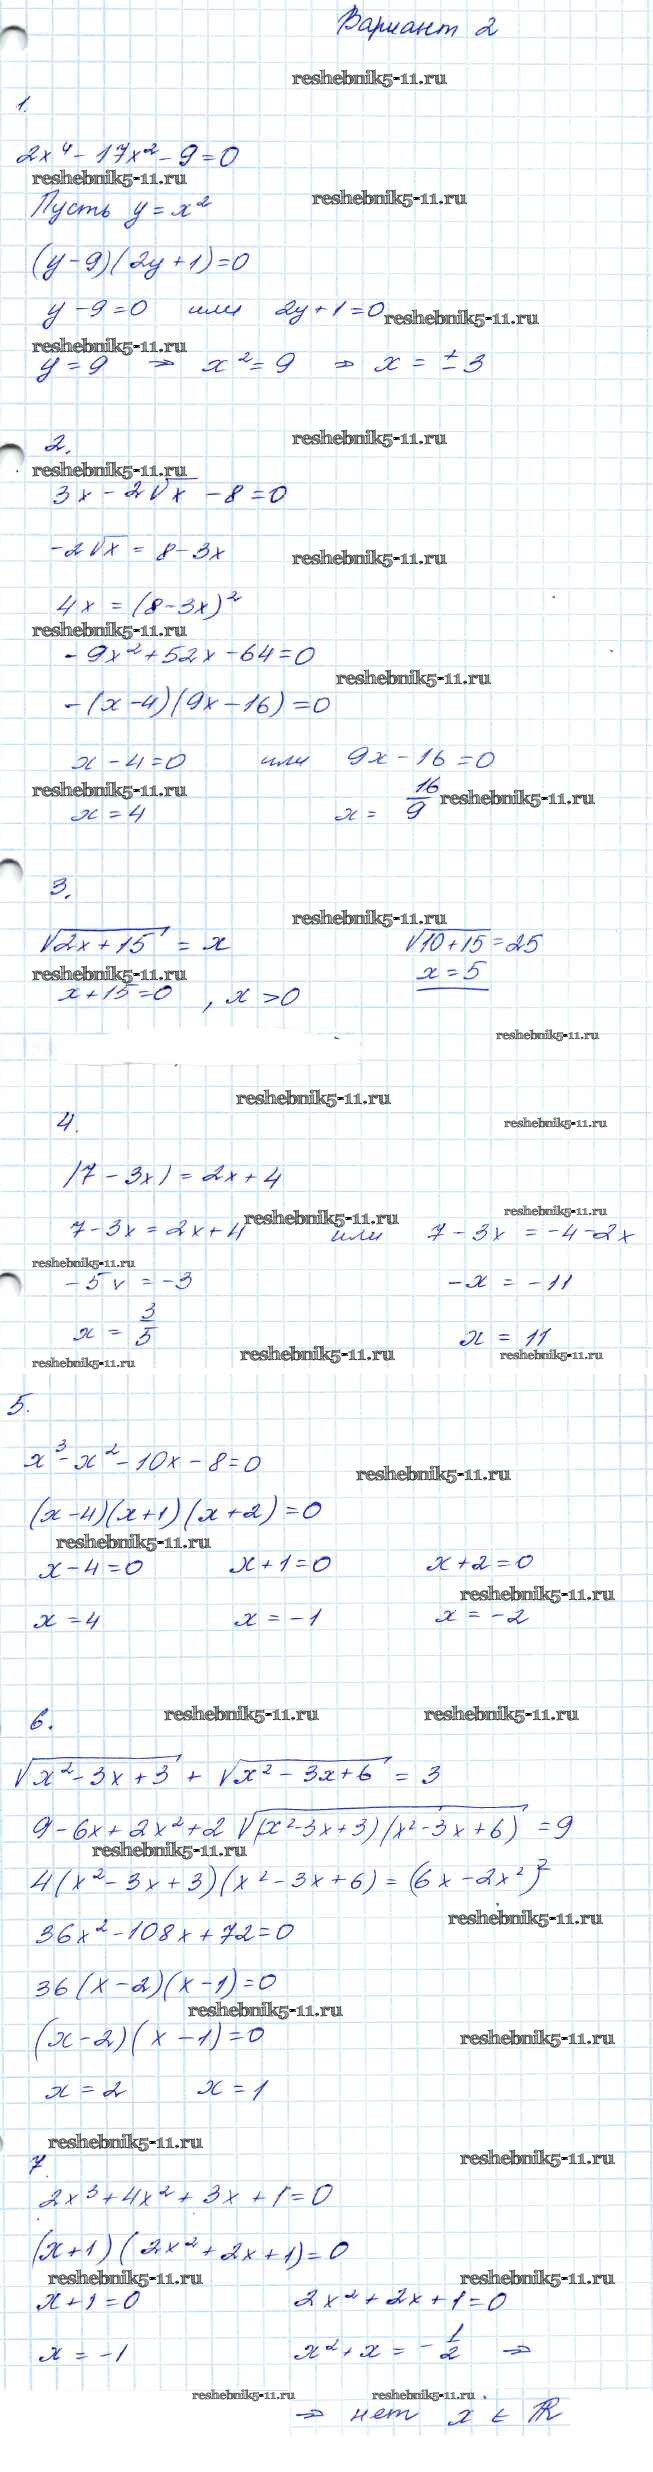 Вариант 2
reshebnik5-11.ru
1.
2x⁴ - 17x² - 9 = 0
reshebnik5-11.ru
reshebnik5-11.ru
Пусть y = x²
(y - 9)(2y + 1) = 0
y - 9 = 0 или 2y + 1 = 0
reshebnik5-11.ru
reshebnik5-11.ru
y = 9 ⇒ x² = 9 ⇒ x = ± 3
2.
reshebnik5-11.ru
reshebnik5-11.ru
3x - 2√x - 8 = 0
-2√x = 8 - 3x
reshebnik5-11.ru
4x = (8 - 3x)²
reshebnik5-11.ru
- 9x² + 52x - 64 = 0
reshebnik5-11.ru
- (x - 4)(9x - 16) = 0
x - 4 = 0 или 9x - 16 = 0
reshebnik5-11.ru
reshebnik5-11.ru
x = 4 x = 16/9
3.
reshebnik5-11.ru
√(2x + 15) = x √(10 + 15) = 25
reshebnik5-11.ru
x = 5
x + 15 = 0 , x > 0
reshebnik5-11.ru
reshebnik5-11.ru
4.
reshebnik5-11.ru
|7 - 3x| = 2x + 4
reshebnik5-11.ru
reshebnik5-11.ru
7 - 3x = 2x + 4 или 7 - 3x = -4 - 2x
reshebnik5-11.ru
-5x = -3 -x = -11
x = 3/5 x = 11
reshebnik5-11.ru
reshebnik5-11.ru
reshebnik5-11.ru
5.
x³ - x² - 10x - 8 = 0
reshebnik5-11.ru
(x - 4)(x + 1)(x + 2) = 0
reshebnik5-11.ru
x - 4 = 0 x + 1 = 0 x + 2 = 0
reshebnik5-11.ru
x = 4 x = -1 x = -2
6.
reshebnik5-11.ru
reshebnik5-11.ru
√(x² - 3x + 3) + √(x² - 3x + 6) = 3
9 - 6x + 2x² + 2√((x² - 3x + 3)(x² - 3x + 6)) = 9
reshebnik5-11.ru
4(x² - 3x + 3)(x² - 3x + 6) = (6x - 2x²)²
reshebnik5-11.ru
36x² - 108x + 72 = 0
36(x - 2)(x - 1) = 0
reshebnik5-11.ru
(x - 2)(x - 1) = 0
reshebnik5-11.ru
x = 2 x = 1
reshebnik5-11.ru
reshebnik5-11.ru
7.
2x³ + 4x² + 3x + 1 = 0
(x + 1)(2x² + 2x + 1) = 0
reshebnik5-11.ru
reshebnik5-11.ru
x + 1 = 0 2x² + 2x + 1 = 0
x = -1 x² + x = -1/2 ⇒
reshebnik5-11.ru
reshebnik5-11.ru
⇒ нет x ∈ ℝ